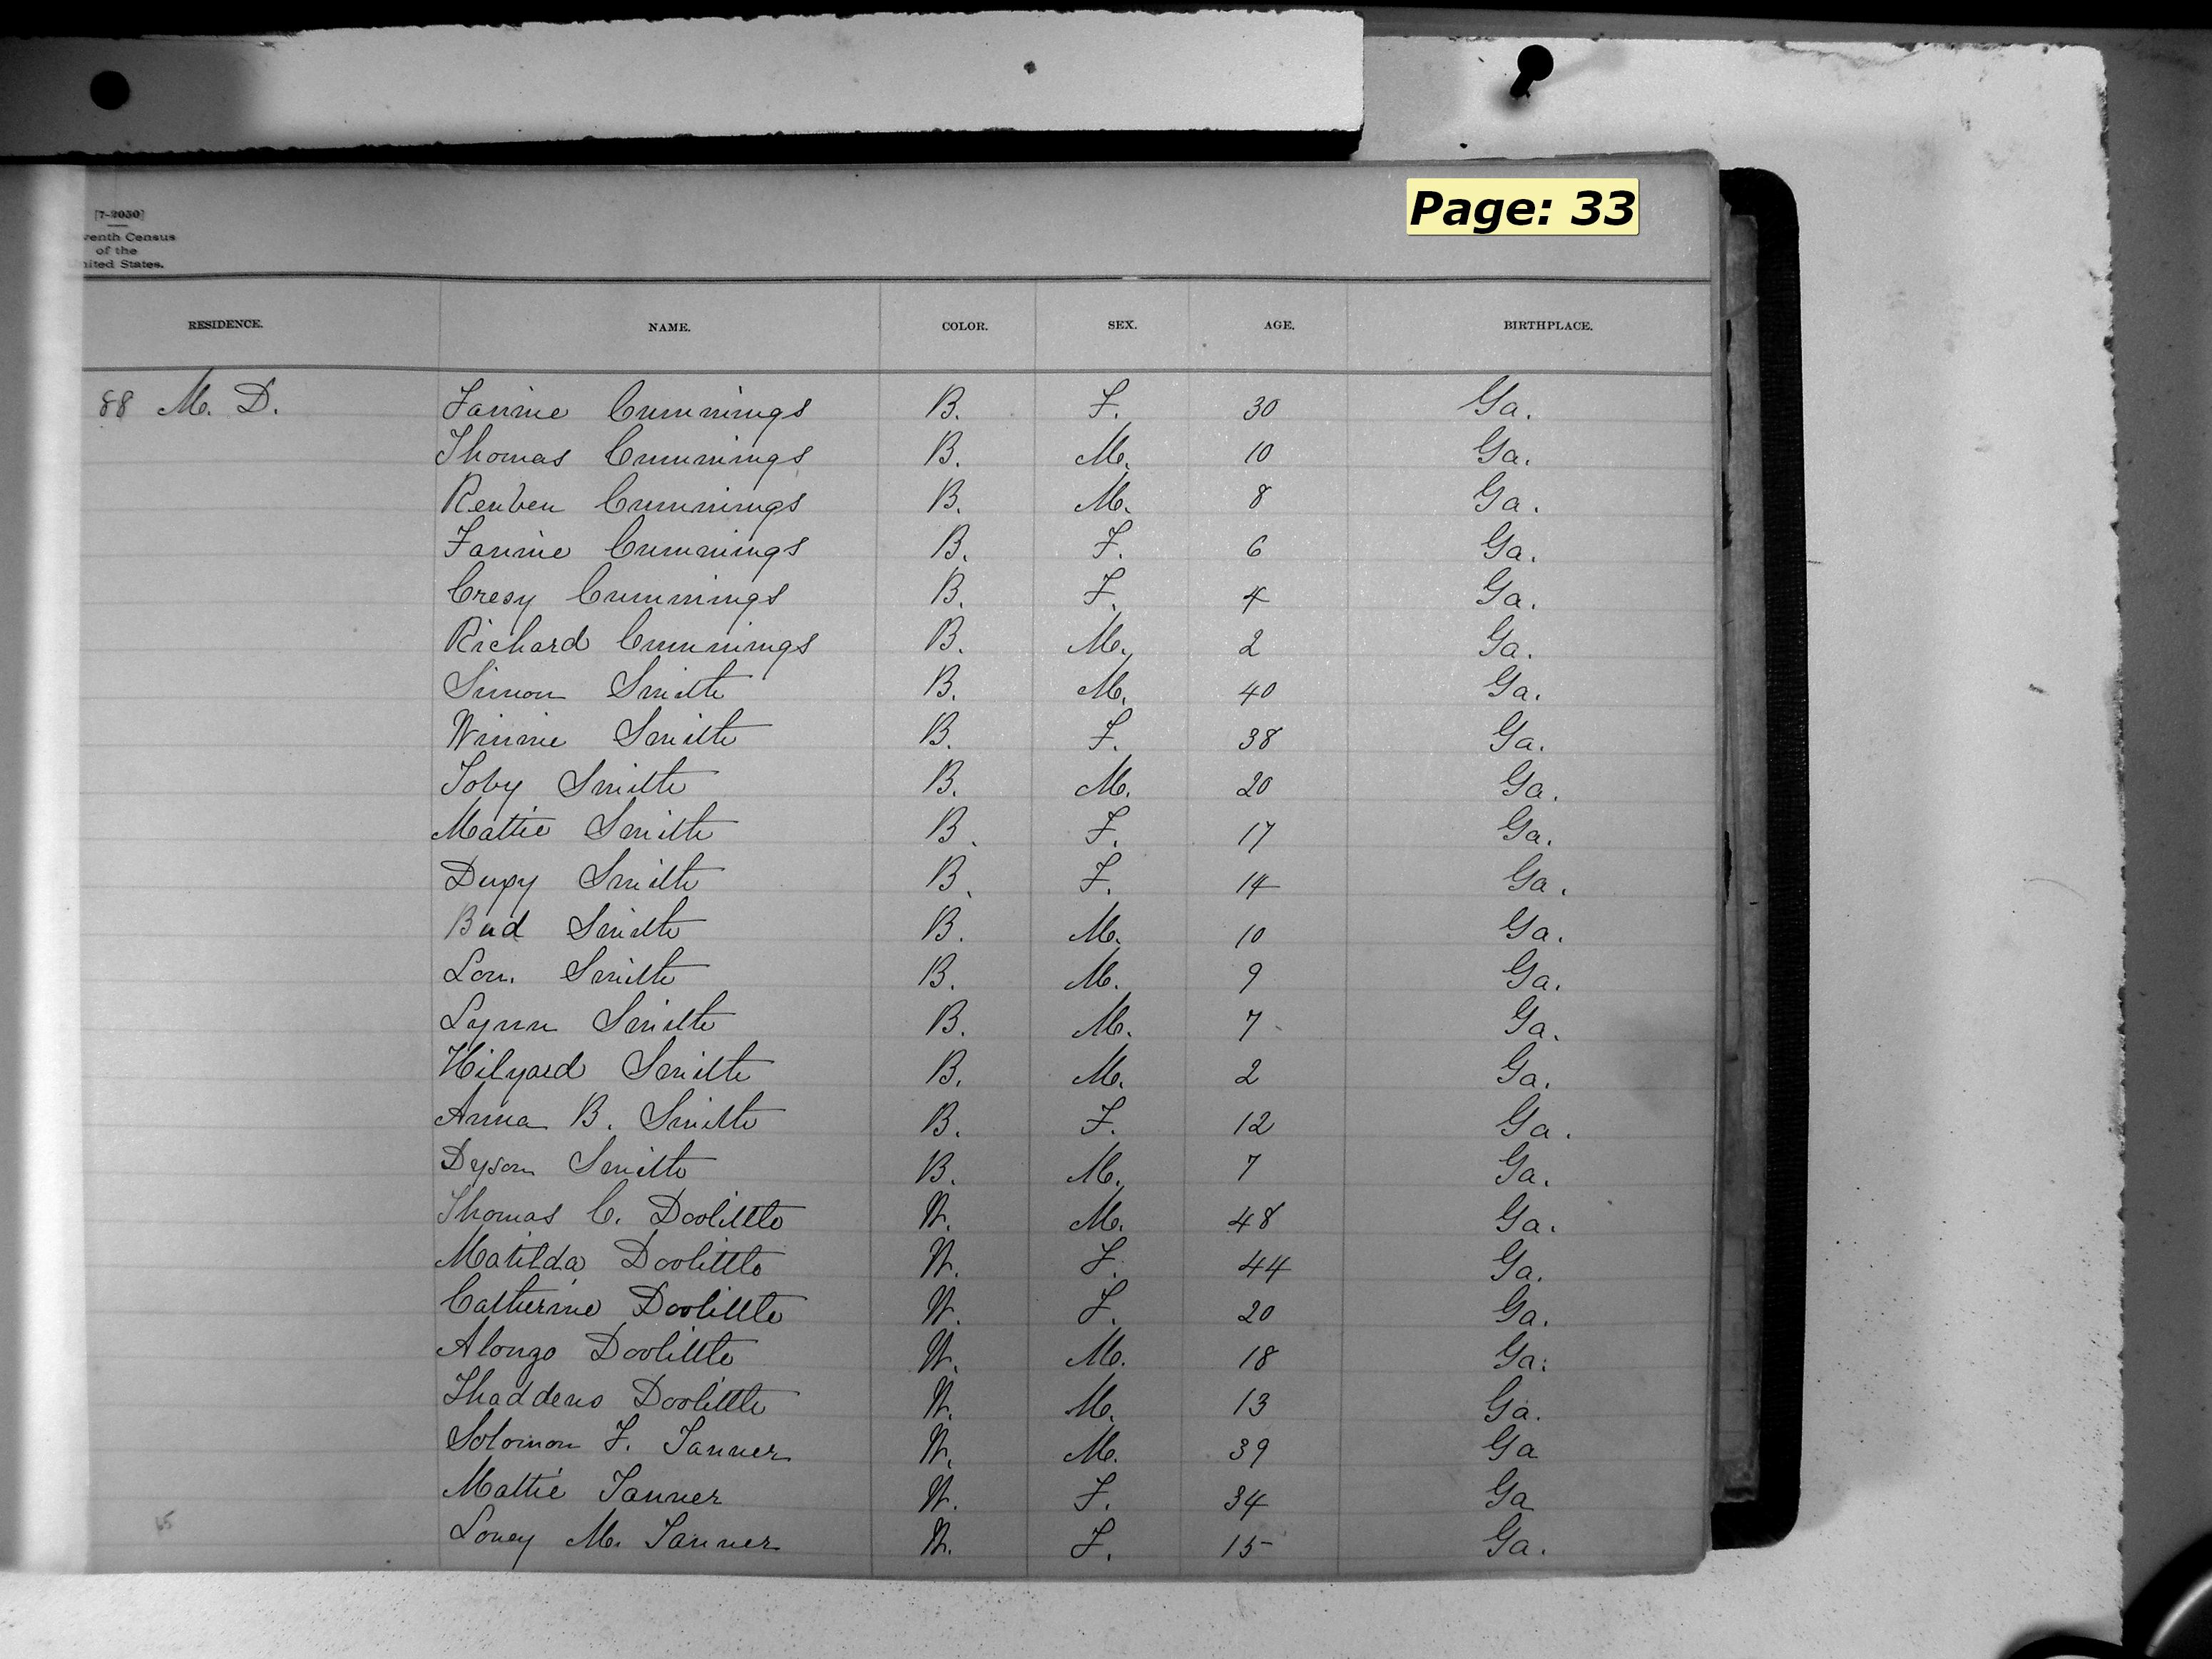 Page: 33
[7-2050]
venth Census
of the
nited States.
RESIDENCE. NAME. COLOR. SEX. AGE. BIRTHPLACE.
88 M. D. Fannie Cummings B. F. 30 Ga.
Thomas Cummings B. M. 10 Ga.
Reuben Cummings B. M. 8 Ga.
Fannie Cummings B. F. 6 Ga.
Cresy Cummings B. F. 4 Ga.
Richard Cummings B. M. 2 Ga.
Simon Smith B. M. 40 Ga.
Winnie Smith B. F. 38 Ga.
Toby Smith B. M. 20 Ga.
Mattie Smith B. F. 17 Ga.
Smith B. F. 14 Ga.
Bud Smith B. M. 10 Ga.
Lon. Smith B. M. 9 Ga.
Lynn Smith B. M. 7 Ga.
Hilyard Smith B. M. 2 Ga.
Anna B. Smith B. F. 12 Ga.
Dyson Smith B. M. 7 Ga.
Thomas C. Doolittle W. M. 48 Ga.
Matilda Doolittle W. F. 44 Ga.
Catherine Doolittle W. F. 20 Ga.
Alonzo Doolittle W. M. 18 Ga.
Thaddeus Doolittle W. M. 13 Ga.
Solomon F. Tanner W. M. 39 Ga
Mattie Tanner W. F. 34 Ga
Loney M. Tanner W. F. 15 Ga.